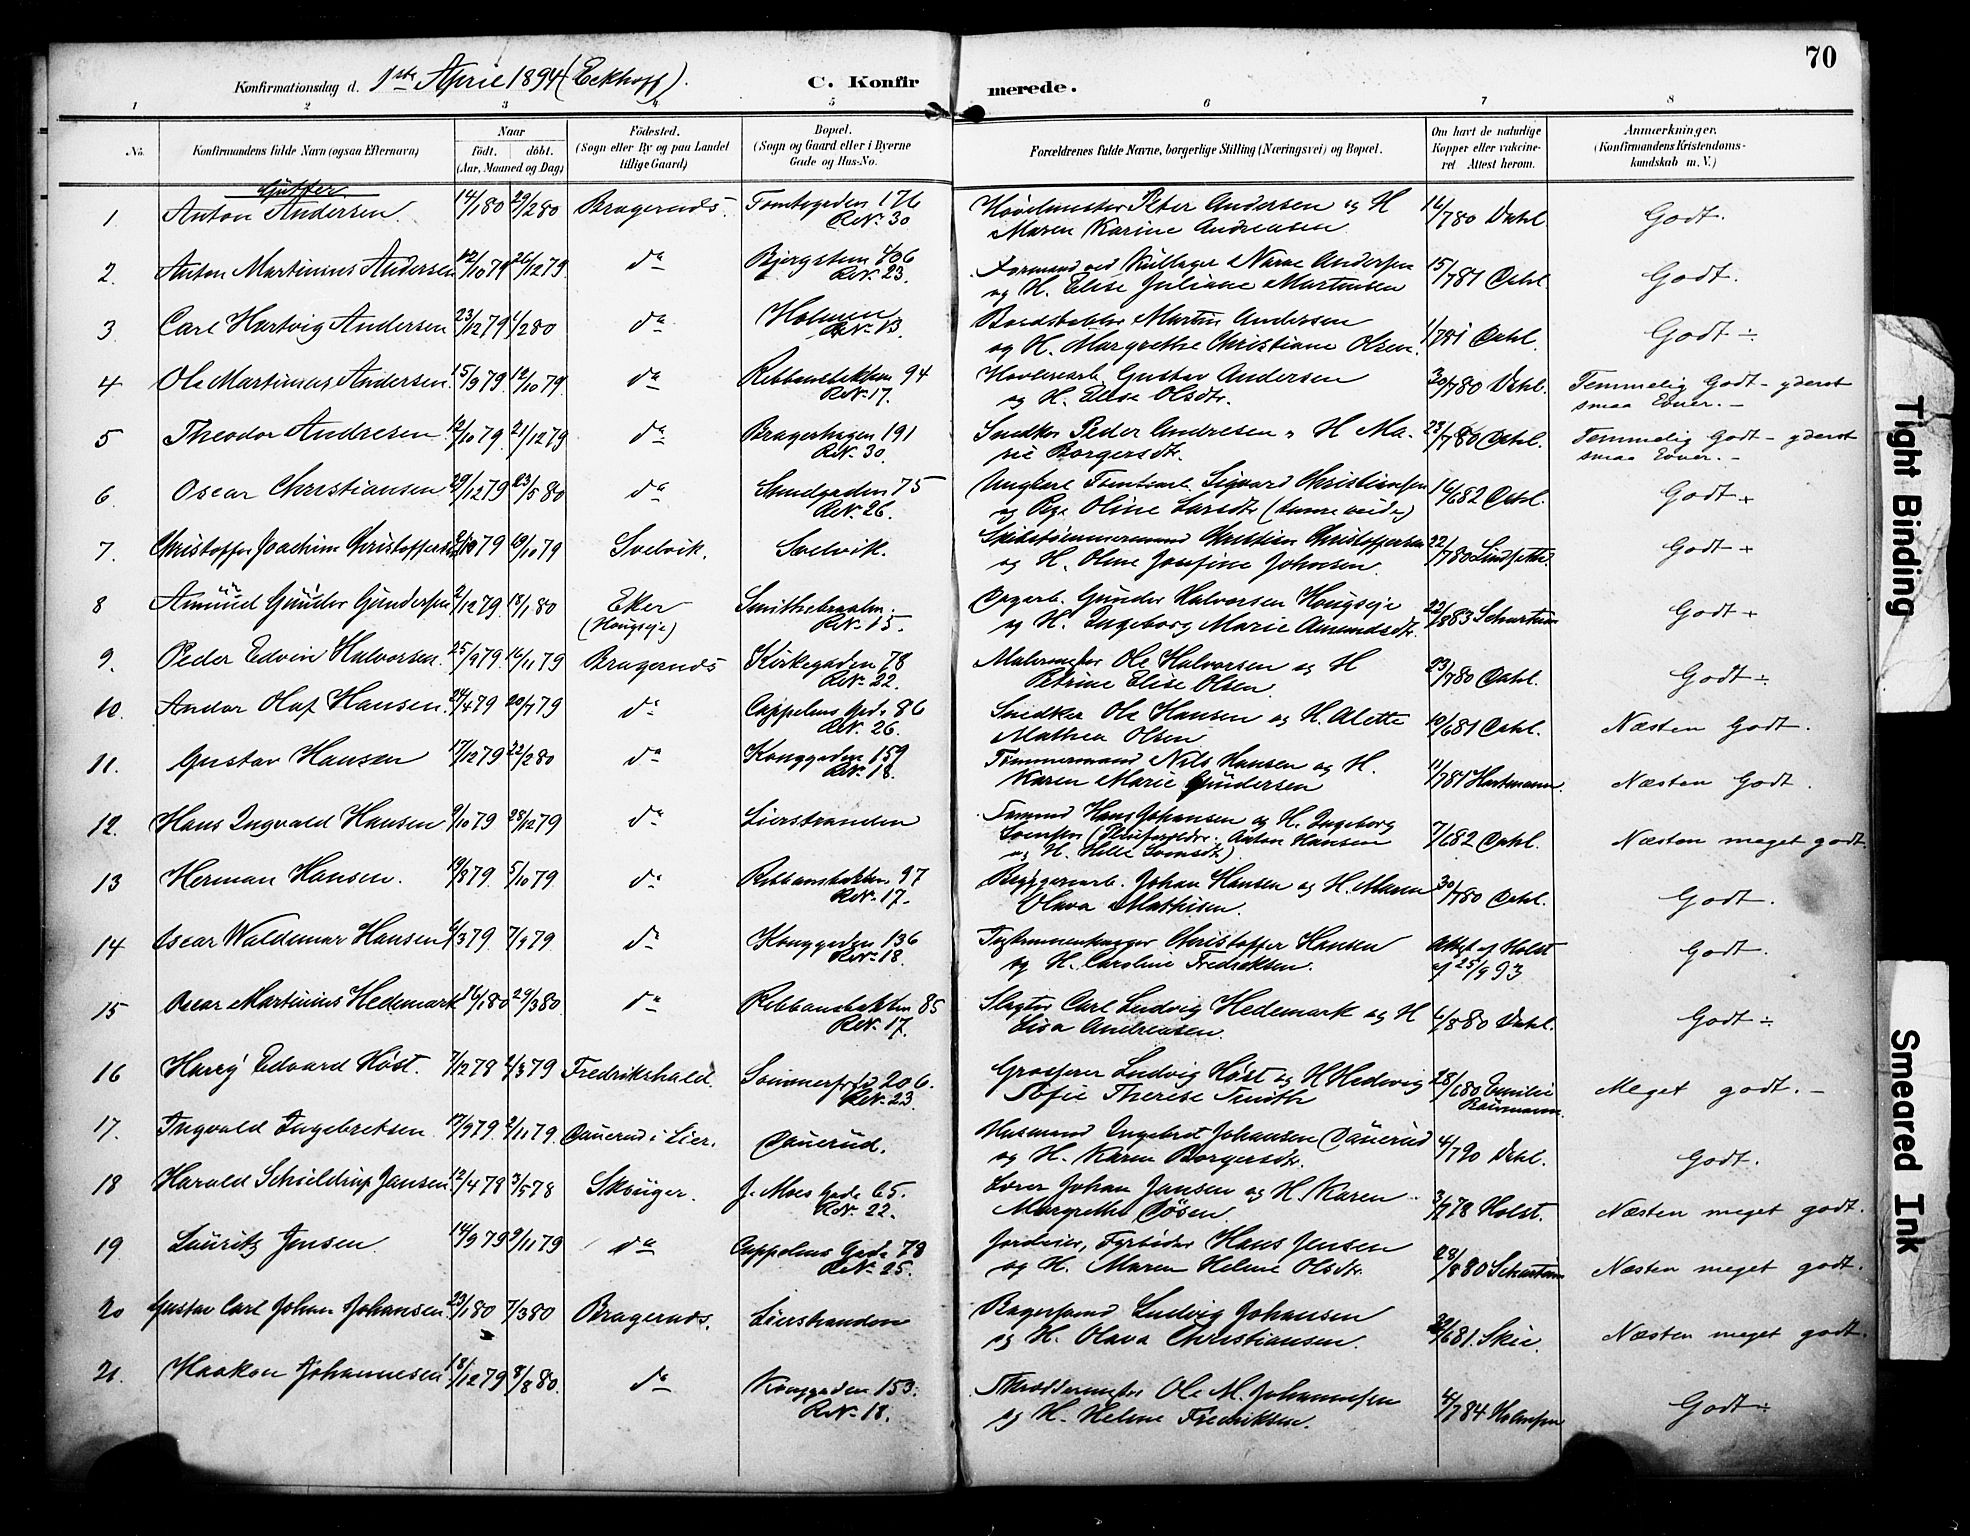 70
Konfirmationsdag d. 1ste April 1894 (Eckhoff).
C. Konfirmerede.
1 2 3 4 5 6 7 8
No.
Konfirmandens fulde Navn (ogsaa Efternavn)
Naar
födt. döbt.
(Aar, Maaned og Dag)
Födested.
(Sogn eller By og paa Landet
tillige Gaard)
Bopæl.
(Sogn og Gaard eller i Byerne
Gade og Hus-No.
Forældrenes fulde Navne, borgerlige Stilling (Næringsvei) og Bopæl.
Om havt de naturlige
Kopper eller vaccine-
ret Attest herom.
Anmærkninger.
(Konfirmandens Kristendoms-
kundskab m. V.)
Gutter
1 Anton Andersen. 14/1 80 29/2 80 Bragernæs. Tomtegaden 176 Peter Andersen og H 16/7 80 Dahl. Godt.
R.N. 30 Maren Karine Andreasen
2. Anton Martinius Andersen 12/10 79 26/12 79 da Bjergstien 406 Formand ved Andersen 15/7 81 Dahl. Godt.
R.N. 23. og H. Elise Juliane Martinsen
3 Carl Hartvig Andersen 23/12 79 1/2 80 da Holmen Martin Andersen 1/7 81 Dahl. Godt ÷
R.N. 13. og H. Margrethe Christiane Olsen.
4 Ole Martinius Andersen. 15/9 79 19/10 79. da 94 Gustav Andersen 30/7 80 Dahl. Temmelig Godt - yderst
R.N. 17. og H. Elise Olsdtr. smaa Evner. -
5 Theodor Andresen. 12/10 79. 21/12 79 da Bragerhagen 191 Snedker Peder Andresen " H Ma- 23/7 80 Dahl. Temmelig Godt - yderst
R.N. 30. rie Borgersdtr. smaa Evner. -
6 Oscar Christiansen 29/12 79 23/5 80 da Strandgaden 75 Ungkarl Tomtearb. Sigvard Christiansen 16/6 82 Dahl. Godt +
R.N. 26. og Pige Oline Larsdtr
7. Christoffer Joachim Christoffersen 79 19/10 79 Svelvik. Svelvik. Skibstømmermand Christian Christoffersen 22/7 80 Godt +
og H. Oline Josefine Johnsen.
8 Amund Gunder Gundersen 2/12 79. 18/1 80 Eker R.N. 15. Gunder Halvorsen Hougseje 22/8 83 Schartum Godt +
(Hougseje) og H. Ingeborg Marie Amundsdtr.
9. Peder Edvin Halvorsen. 25/9 79. 16/11 79 Bragernæs Kirkegaden 78 Malermester Ole Halvorsen og H 23/7 80 Dahl. Godt ÷
R.N. 22. Petrine Elise Olsen.
10. Andor Olaf Hansen. 24/4 79 20/7 79 da Cappelens Gade 86 Snedker Ole Hansen og H. Alette 10/6 81 Dahl. Næsten Godt.
R.N. 26. Mathea Olsen
11. Gustav Hansen 17/12 79 22/2 80 da Konggaden 159 Tømmermand Nils Hansen og H. 11/7 81 Hartmann. Næsten Godt.
R.N. 18. Karen Marie Gundersen
12. Hans Ingvald Hansen 9/10 79 28/12 79 da Lierstranden Sømand Hans Johansen og H. Ingeborg 7/6 82 Dahl. Næsten meget godt
(Pleieforældre: Anton Hansen
og H. Helle Svensdtr)
13 Herman Hansen. 19/8 79. 5/10 79 da 97 Johan Hansen og H. Maren 30/7 80 Dahl. Godt.
R.N. 17. Olava Mathisen.
14 Oscar Waldemar Hansen 6/3 79. da Konggaden 136 Christoffer Hansen Attest af Holst Godt.
R.N. 18. og H. Caroline Fredriksen. af 25/9 93
15 Oscar Martinius Hedemark 16/1 80 29/3 80 da 85 Slagter Carl Ludvig Hedemark og H 6/8 80 Dahl. Godt ÷
R.N. 17. Lisa Andreasen.
16 Harry Edvard Høst. 7/12 78 2/3 79 Fredrikshald. 206. Grosserer Ludvig Høst og H Hedevig 28/6 80 Emilie Meget godt. -
R.N. 23. Sofie Therese Smith
17. Ingvald Ingebretsen. 17/9 79 2/11 79. Dauerud i Lier. Dauerud. Husmand Ingebret Johansen Dauerud 4/7 90 Dahl. Godt.
og H. Karen Borgersdtr.
18 Harald Schieldrup Jansen. 12/4 78 3/5 78 Skouger. J. Moes Gade 65. Johan Jansen og H. Karen 3/7 78 Holst. Næsten meget godt.
R.N. 22. Margrethe
19 Lauritz Jensen. 14/9 79 9/11 79 da Cappelens Gade 78 Fyrbøder Hans Jensen 28/8 80 Schartum Næsten meget godt.
R.N. 25. og H. Maren Helene Olsdtr.
20 Gustav Carl Johan Johansen. 23/1 80 7/3 80 Bragernæs. Lierstranden Ludvig Johansen 6 81. Skie. Næsten meget godt.
og H. Olava Christiansen.
21. Haakon Johannesen 18/12 79 8/8 80. da Konggaden 153. Skræddermester Ole M. Johannesen 4/7 84 Holmsen Godt ÷
R.N. 18. og H. Helene Fredriksen.
Tight Binding
Smeared Ink